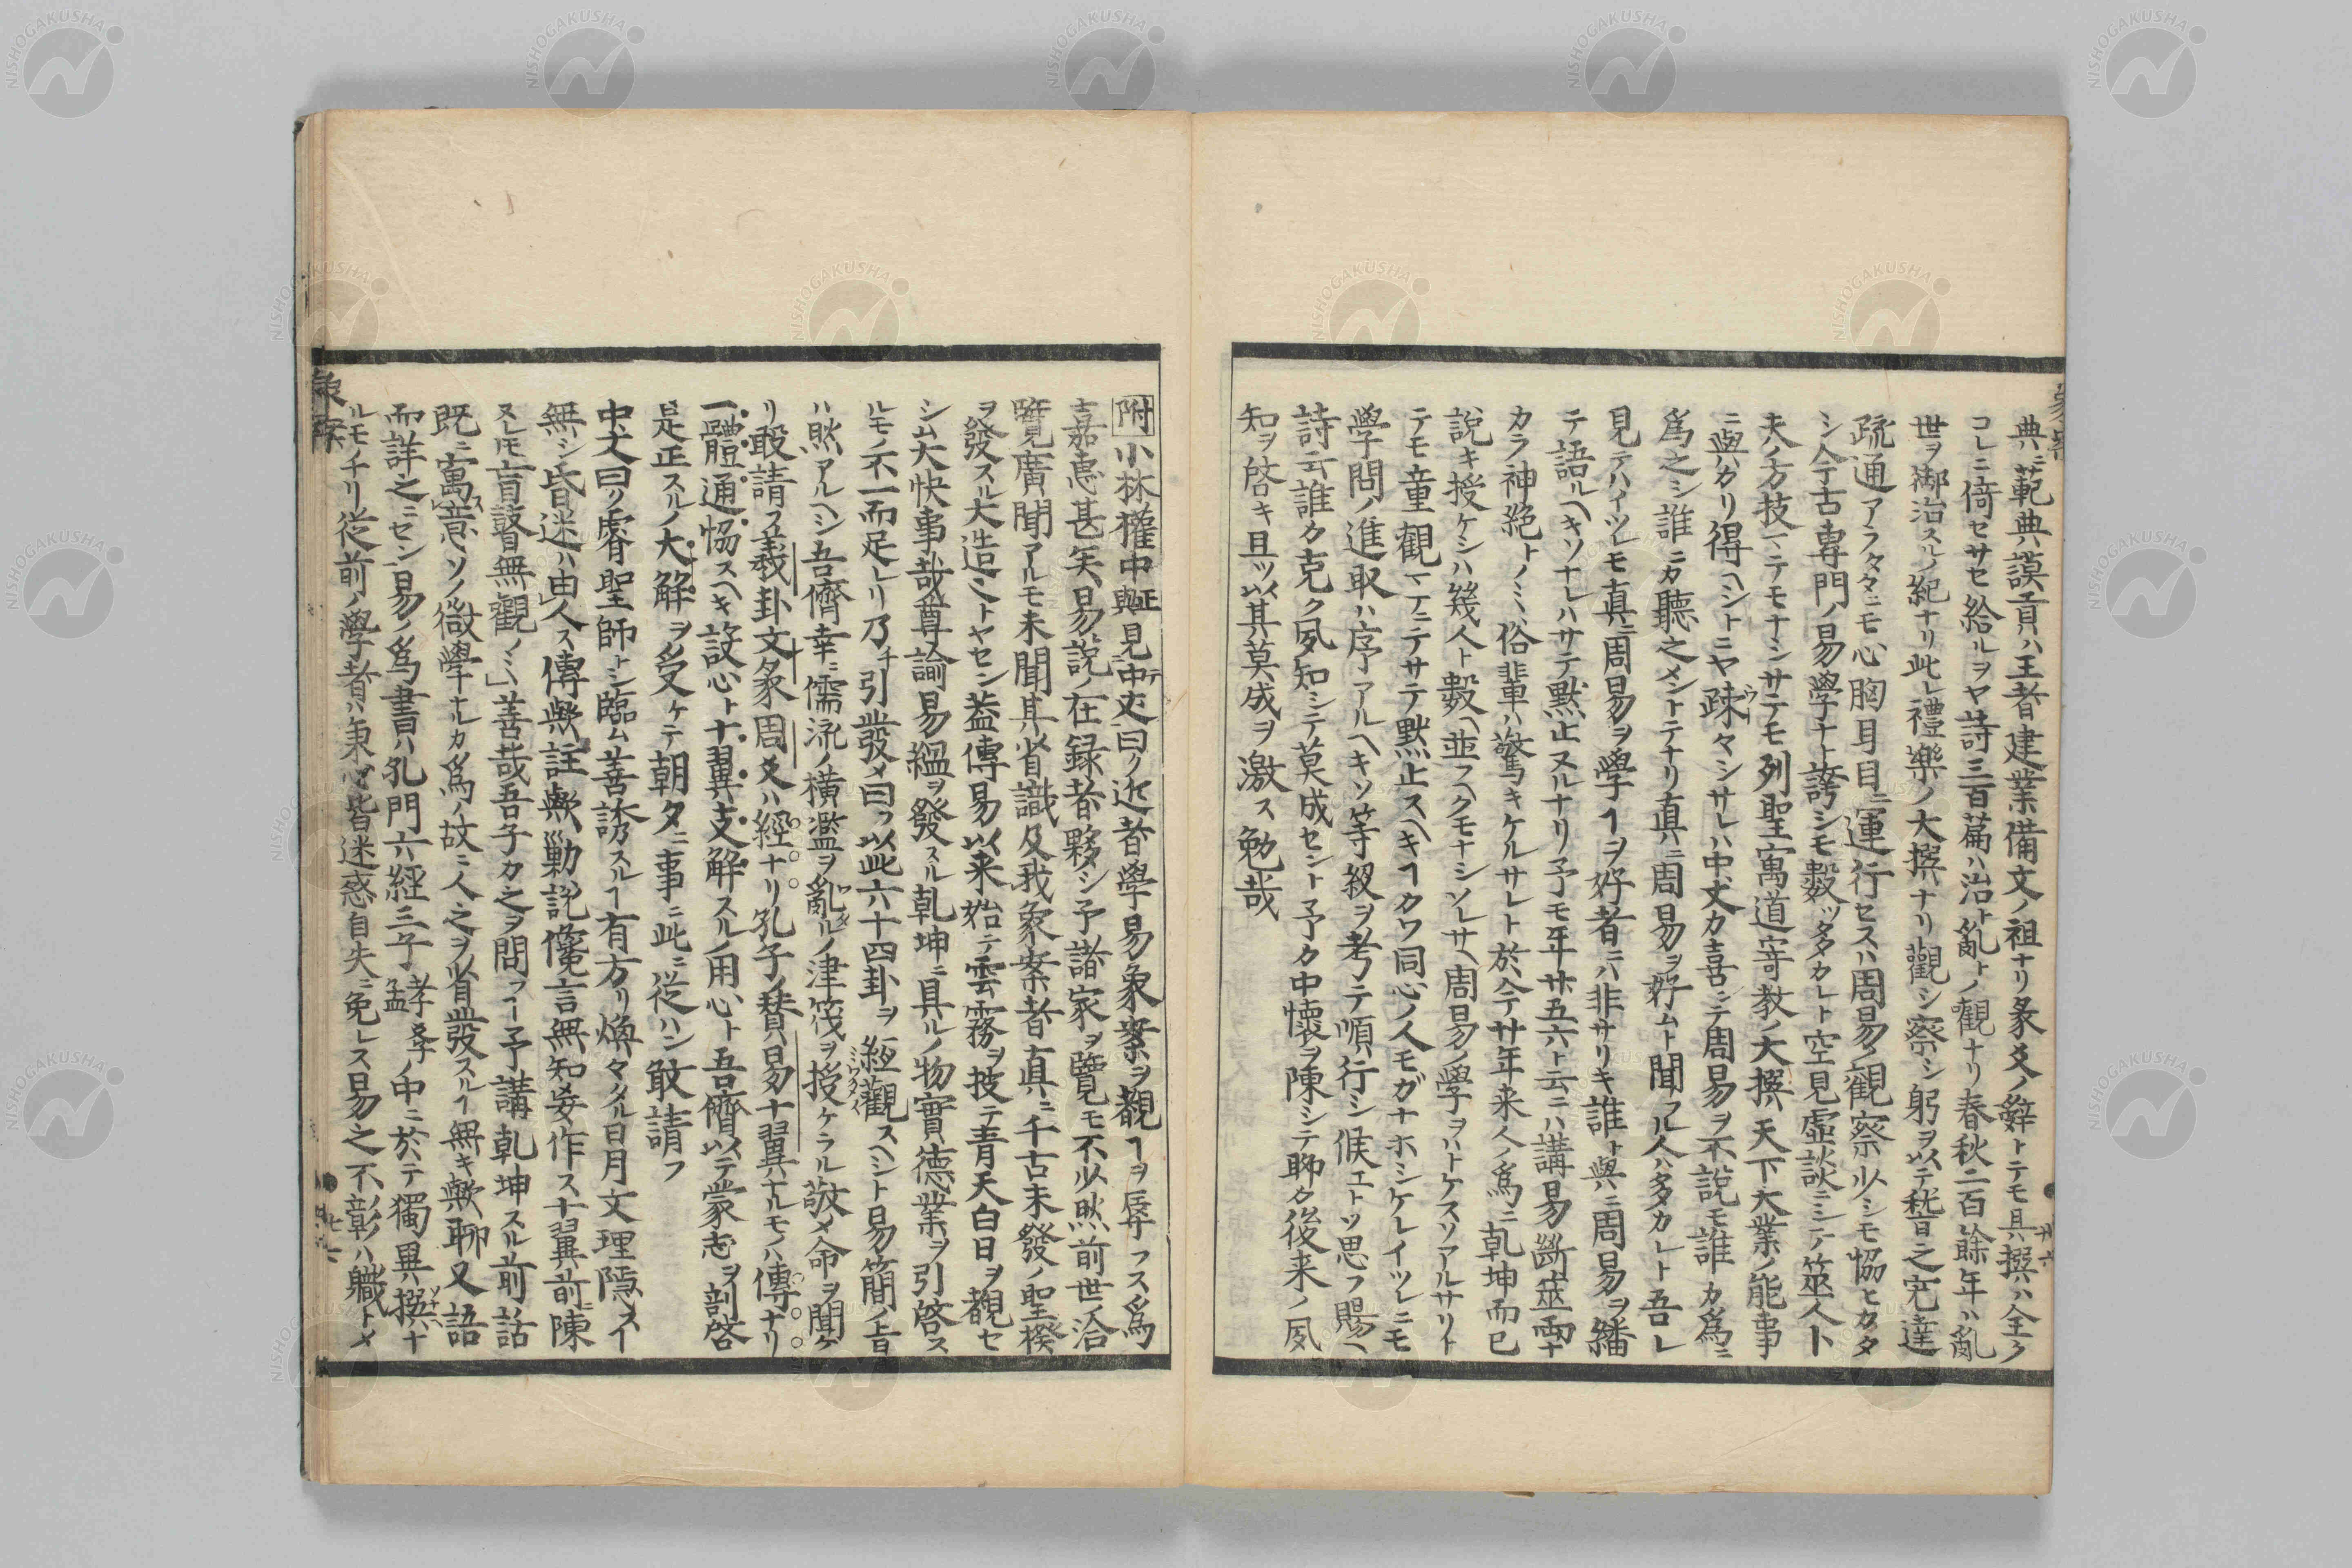 典範典謨貢ハ王者建業備文ノ祖ナリ彖爻ノ辭トテモ具撰ハ全ク
コレニ倚セサセ給ルヲヤ詩三百篇ハ治ト亂トノ觀ナリ春秋二百餘年ハ亂
世ヲ御治スルノ紀ナリ此レ禮樂ノ大撰ナリ觀シ察シ躬ヲ以テ稽之究達
疏通アラタタニモ心胸耳目ニ運行セスハ周易ノ觀察少シモ協ヒカタ
シ今古專門ノ易學ナト誇シモ數ッタカレト空見虛談ニシテ筮人卜
夫ノ方技マテモナシサテモ列聖寓道寄教ノ大撰天下大業ノ能事
ニ與ハカリ得ヘシトニヤ疎々マシサレハ中丈カ喜ンテ周易ヲ不說モ誰カ爲ニ
爲之シ誰ニカ聽之メントテナリ真ニ周易ヲ好ムト聞フル人ハ多カレト吾レ
見テハイツレモ真ニ周易ヲ學フヿヲ好者ニハ非サリキ誰ト與ニ周易ヲ繙
テ語ルヘキソナレハサテ默止ヌルナリ予モ年廿五六ト云ニハ講易斷筮兩ナ
カラ神絶トノミ俗輩ハ驚キケルサレト於今廿年来人ノ爲ニ乾坤而已
說キ授ケシハ幾人ト數ヘ並フヘクモナシソレサヘ周易ノ學ヲハトケスソアルサリト
テモ童觀マテニテサテ默止スヘキヿカワ同心ノ人モガナホシケレイツレニモ
學問ノ進取ハ序アルヘキソ等級ヲ考テ順行シ候エトツ思フ賜ヘ
詩云誰カ克ク夙知シテ莫成セシト予カ中懷ヲ陳シテ聊ク後来ノ夙
知ヲ啓キ且ッ以其莫成ヲ激ス勉哉
附小林權中興正見中丈曰ク近者學易彖案ヲ觀ヿヲ辱フス爲
嘉惠甚矣易說ノ在録者夥シ予諸家ヲ覽モ不少然前世ノ洽
覽廣聞アルモ未聞其省識及我彖案者真ニ千古未發ノ聖揆
ヲ發スル大造ミトヤセン蓋傳易以来始テ雲霧ヲ披テ青天白日ヲ覩セ
シム大快事哉尊諭易縕ヲ發スル乾坤ニ具ルノ物實德業ヲ引啓ス
ルモノ不一而足レリ乃チ引發メ曰フ以此六十四卦ヲ經觀スヘシト易簡ノ旨
ハ然アルヘシ吾儕幸ニ儒流ノ橫濫ヲ亂ルノ津筏ヲ授ケラル敬メ命ヲ聞ケ
リ敢請フ羲卦文彖周爻ハ經ナリ孔子ノ賛易十翼ナルモノハ傳ナリ
一體通恊スヘキ設心ト十翼支解スルノ用心ト吾儕以テ蒙志ヲ剖啓
是正スルノ大解ヲ受ケテ朝夕ニ事ニ此ニ從ハン敢請フ
中丈曰ク睿聖師トシ臨ム善誘スルヿ有方リ煥々タル日月文理隱スヿ
無シ昏迷ハ由人ス傳歟註歟勦說儳言無知妄作ス十翼前ニ陳
スレモ盲瞽無觀ノミ善哉吾子カ之ヲ問フヿ予講乾坤スル前話
既ニ寓意スソノ微學ナルカ爲ノ故ニ人之ヲ省發スルヿ無キ歟聊又語
而詳之ニセン易ノ爲書ハ孔門六經三子孝孟學ノ中ニ於テ獨異ハ撰ナ
ルモノナリ從前ノ學者ハ秉心皆迷惑自失ニ免レス易之不彰ハ職トメ